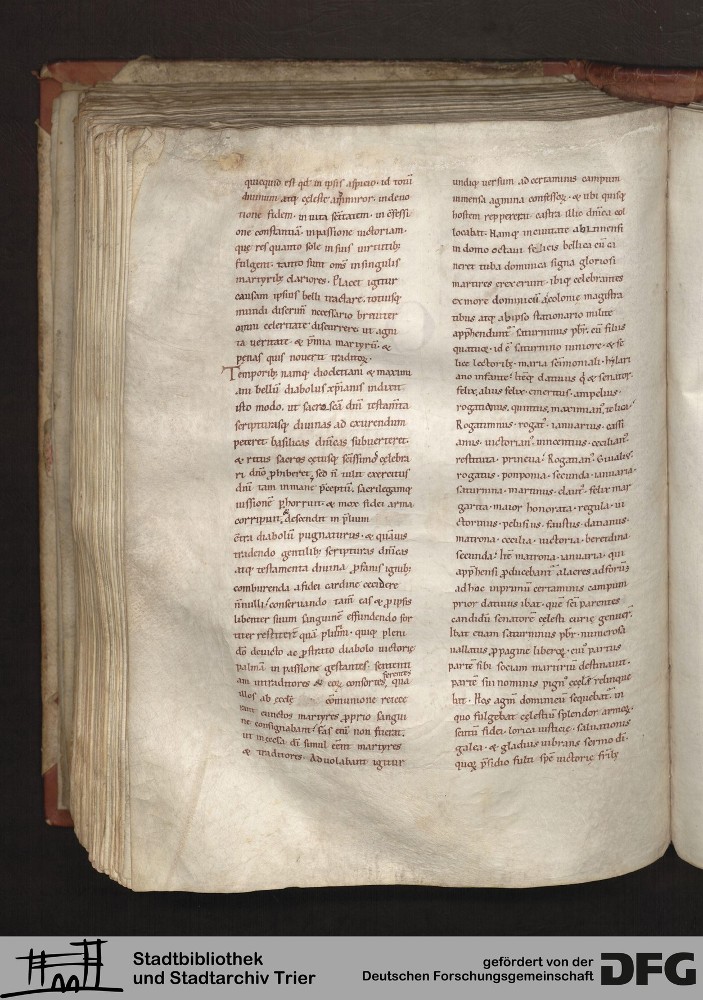 quicquid est qd in ipsis aspicio. id totū
diuinum atq; celeste ammiror. in deuo
tione fidem. in uita sc̄itatem. in cōfessi
one constantiā. in passione uictoriam.
quę res quanto sole in suis uirtutib;
fulgent. tanto sunt om̄s in singulis
martyrib; clariores. Placet igitur
causam ipsius belli tractare. totiusq;
mundi discrim̄ necessario breuiter
omni celeritate discurrere. ut agni
ta ueritate. & p̄mia martyrū. &
penas quis nouerit traditor;.
Temporib; namq; diocletiani & maximi
ani bellū diabolus xp̄ianis indixit
isto modo. ut sacrosc̄a dn̄i testam̄ta
scripturasq; diuinas ad exurendum
peteret. basilicas dn̄icas subuerteret.
& ritus sacros cętusq; sc̄issimos celebra
ri dn̄o ꝓhiberet. sed n̄ tulit exercitus
dn̄i tam inmane p̄ceptū. sacrilegamq;
iussionē ꝑhorruit. & mox fidei arma
corripuit. & descendit in p̄lium
c̄tra diabolū pugnaturus. & quāuis
tradendo gentilib; scripturas dn̄icas
atq; testamenta diuina. ꝓfanis ignib;
comburenda a fidei cardine cecidere
nn̄ulli. conseruando tam̄ eas & ꝓ ipsis
libenter suum sanguinē effundendo for
titer
quiq; pleni
dō deuicto ac ꝓstrato diabolo uictorię
palmā in passione gestantes. sententi
am in traditores & eoꝝ consortes, qua
ferentes
illos ab ecclę cōmunione reiece
rant cunctos martyres ꝓprio sangui
ne consignabant. fas enī non fuerat.
ut in ecc̄sa dī simul eēnt martyres
& traditores. Aduolabant igitur
undiq; uersum ad certaminis campum
inmensa agmina confessoꝝ. & ubi quisq;
hostem reppererat. castra illic dn̄ica col
locabat. Namq; in ciuitate abitinensi
in domo octaui felicis bellica cū ci
neret tuba dominica signa gloriosi
martires erexerunt. ibiq; celebrantes
ex more dominicū a colonię magistra
tibus atq; ab ipso stationario milite
app̄hendunt̄. saturninus pb̄r. cū filiis
quatuor. id ē saturnino iuniore. & fe
lice lectorib;. maria sc̄imoniali. hylari
ano infante. Iteq; datiuus q & senator.
felix. alius felix. emeritus. ampelius.
rogatianus. quintus. maximian'. telica.
Rogatianus. rogat'. ianuarius. cassi
anus. uictorian'. innocentius. cecilian'.
restituta. prineua. Rogatian'. Giualis.
rogatus. ponponia. secunda. ianuaria.
saturnina. martinus. claut'. felix. mar
garita. maior. honorata. regula. ui
ctorinus. pelusius. faustus. datianus.
matrona. cecilia. uictoria. berectina.
secunda. Itē matrona. ianuaria. qui
app̄hensi ꝓducebant̄ alacres ad forū.
ad hoc inprimū certaminis campum
prior datiuus ibat. quē sc̄i parentes
candidū senatorē cęlesti curię genuer̄.
Ibat etiam saturninus pb̄r. numerosa
uallatus ꝓpagine liberoꝝ. cui' partus
partē sibi sociam martirii destinauit.
partē sui nominis pign' eccl̄ę relinque
bat. Hos agm̄ dominicū sequebat̄. in
quo fulgebat cęlestiū splendor armoꝝ.
scutū fidei. lorica iusticię. saluationis
galea. & gladius uibrans sermo dī.
quoꝝ p̄sidio fulti spē uictorię fr̄ib;
Stadtbibliothek
und Stadtarchiv Trier
gefördert von der
Deutschen Forschungsgemeinschaft
DFG